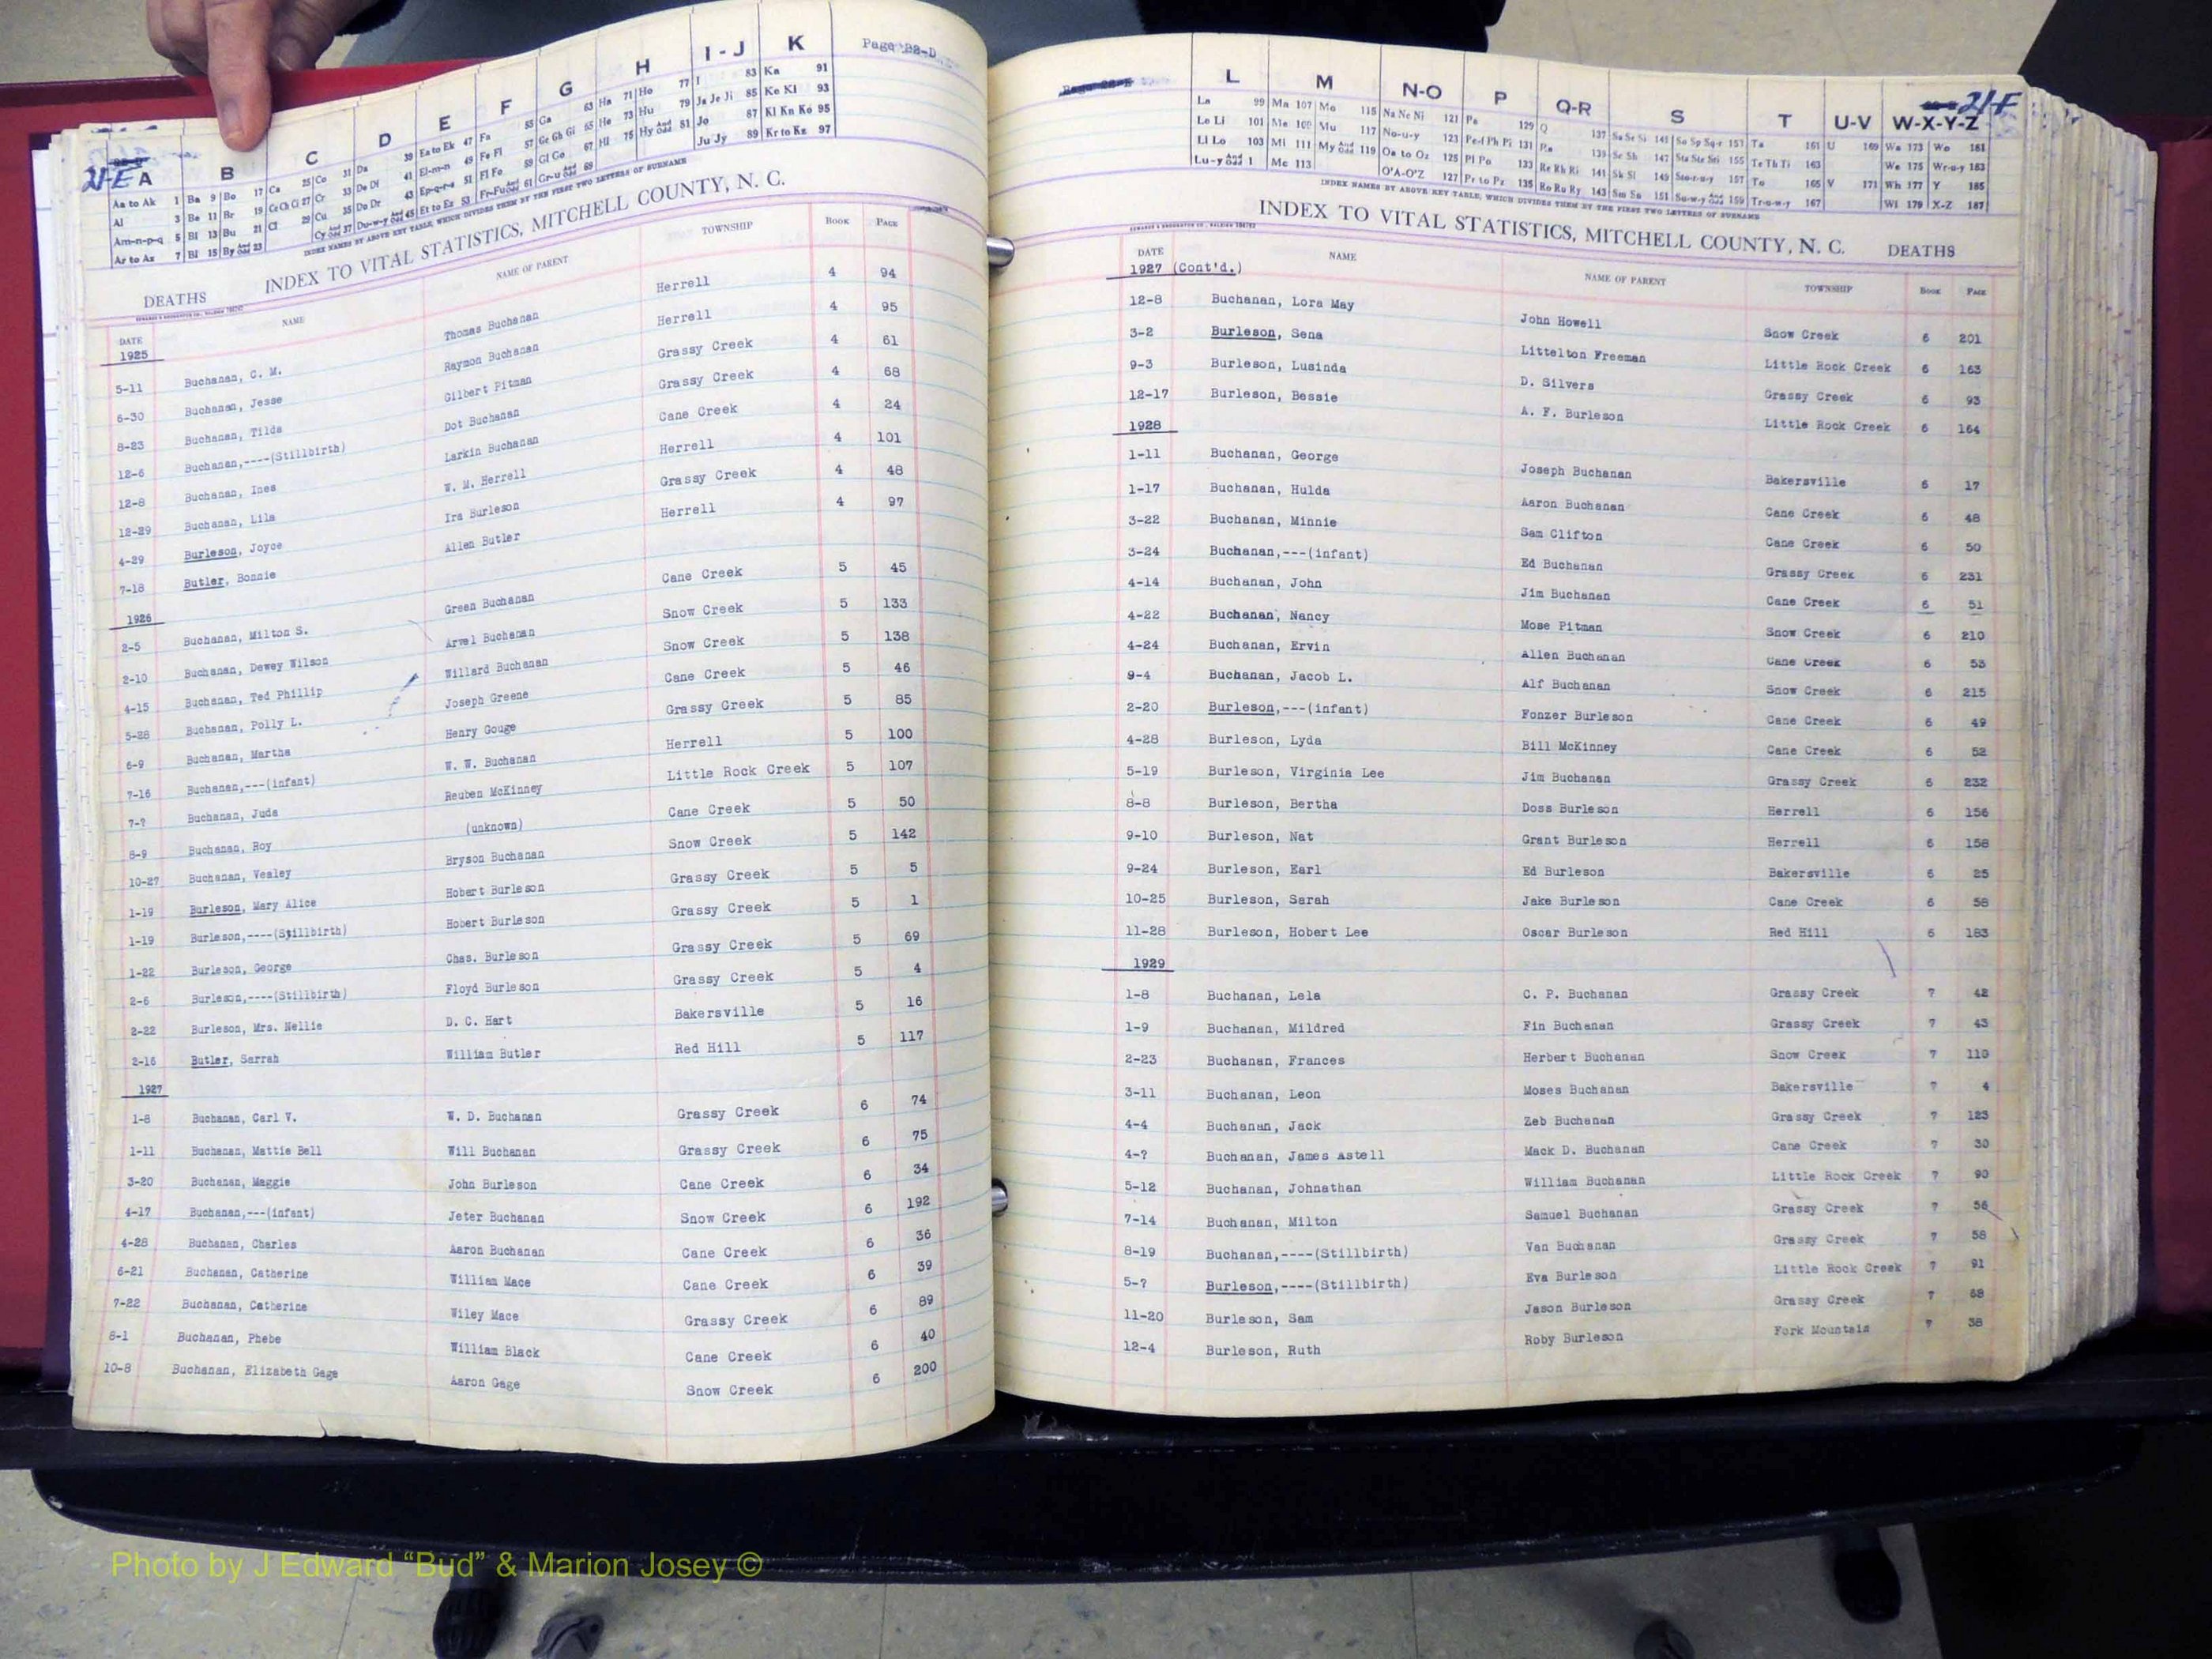 A B C D E F G H I-J K Page 22-D
21-E
Aa to Ak 1 Ba 9 Bo 17 Ca 25 Co 31 Da 39 Ea to Ek 47 Fa 55 Ga 63 Ha 71 Ho 77 I 83 Ka 91
Al 3 Be 11 Br 19 Ce Ch Ci 27 Cr 33 De Di 41 El-m-n 49 Fe Fi 57 Ge Gh Gi 65 He 73 Hu 79 Ja Je Ji 85 Ke Ki 93
Am-n-p-q 5 Bi 13 Bu 21 Cl 29 Cu 35 Do Dr 43 Ep-q-r-s 51 Fl Fo 59 Gl Go 67 Hi 75 Hy And Odd 81 Jo 87 Kl Kn Ko 95
Ar to Az 7 Bl 15 By And Odd 23 Cy And Odd 37 Du-w-y And Odd 45 Et to Ez 53 Fr-Fu And Odd 61 Gr-u And Odd 69 Ju Jy 89 Kr to Kz 97
INDEX NAMES BY ABOVE KEY TABLE, WHICH DIVIDES THEM BY THE FIRST TWO LETTERS OF SURNAME
DEATHS INDEX TO VITAL STATISTICS, MITCHELL COUNTY, N. C.
DATE NAME NAME OF PARENT TOWNSHIP BOOK PAGE
1925
5-11 Buchanan, C. M. Thomas Buchanan Herrell 4 94
6-30 Buchanan, Jesse Raymon Buchanan Herrell 4 95
8-23 Buchanan, Tilda Gilbert Pitman Grassy Creek 4 61
12-6 Buchanan,----(Stillbirth) Dot Buchanan Grassy Creek 4 68
12-8 Buchanan, Ines Larkin Buchanan Cane Creek 4 24
12-29 Buchanan, Lila W. M. Herrell Herrell 4 101
4-29 Burleson, Joyce Ira Burleson Grassy Creek 4 48
7-18 Butler, Bonnie Allen Butler Herrell 4 97
1926
2-5 Buchanan, Milton S. Green Buchanan Cane Creek 5 45
2-10 Buchanan, Dewey Wilson Arvel Buchanan Snow Creek 5 133
4-15 Buchanan, Ted Phillip Willard Buchanan Snow Creek 5 138
5-28 Buchanan, Polly L. Joseph Greene Cane Creek 5 46
6-9 Buchanan, Martha Henry Gouge Grassy Creek 5 85
7-16 Buchanan,---(infant) W. W. Buchanan Herrell 5 100
7-? Buchanan, Juda Reuben McKinney Little Rock Creek 5 107
8-9 Buchanan, Roy (unknown) Cane Creek 5 50
10-27 Buchanan, Vesley Bryson Buchanan Snow Creek 5 142
1-19 Burleson, Mary Alice Hobert Burleson Grassy Creek 5 5
1-19 Burleson,----(Stillbirth) Hobert Burleson Grassy Creek 5 1
1-22 Burleson, George Chas. Burleson Grassy Creek 5 69
2-6 Burleson,----(Stillbirth) Floyd Burleson Grassy Creek 5 4
2-22 Burleson, Mrs. Nellie D. C. Hart Bakersville 5 16
2-16 Butler, Sarrah William Butler Red Hill 5 117
1927
1-8 Buchanan, Carl V. W. D. Buchanan Grassy Creek 6 74
1-11 Buchanan, Mattie Bell Will Buchanan Grassy Creek 6 75
3-20 Buchanan, Maggie John Burleson Cane Creek 6 34
4-17 Buchanan,---(infant) Jeter Buchanan Snow Creek 6 192
4-28 Buchanan, Charles Aaron Buchanan Cane Creek 6 36
6-21 Buchanan, Catherine William Mace Cane Creek 6 39
7-22 Buchanan, Catherine Wiley Mace Grassy Creek 6 89
8-1 Buchanan, Phebe William Black Cane Creek 6 40
10-8 Buchanan, Elizabeth Gage Aaron Gage Snow Creek 6 200
L M N-O P Q-R S T U-V W-X-Y-Z
21-F
La 99 Ma 107 Mo 115 Na Ne Ni 121 Pa 129 Q 137 Sa Se Si 141 So Sp Sq-r 151 Ta 161 U 169 Wa 173 Wo 181
Le Li 101 Me 109 Mu 117 No-u-y 123 Pe-f Ph Pi 131 Ra 139 Sc Sh 147 Sta Ste Sti 155 Te Th Ti 163 We 175 Wr-u-y 183
Ll Lo 103 Mi 111 My And Odd 119 Oa to Oz 125 Pl Po 133 Re Rh Ri 141 Sk Sl 149 Sto-r-u-y 157 To 165 V 171 Wh 177 Y 185
Lu-y And Odd 1 Mc 113 O'A-O'Z 127 Pr to Pz 135 Ro Ru Ry 143 Sm Sn 151 Su-w-y And Odd 159 Tr-u-w-y 167 Wi 179 X-Z 187
INDEX NAMES BY ABOVE KEY TABLE, WHICH DIVIDES THEM BY THE FIRST TWO LETTERS OF SURNAME
INDEX TO VITAL STATISTICS, MITCHELL COUNTY, N. C. DEATHS
DATE NAME NAME OF PARENT TOWNSHIP BOOK PAGE
1927 (Cont'd.)
12-8 Buchanan, Lora May John Howell Snow Creek 6 201
3-2 Burleson, Sena Littelton Freeman Little Rock Creek 6 163
9-3 Burleson, Lusinda D. Silvers Grassy Creek 6 93
12-17 Burleson, Bessie A. F. Burleson Little Rock Creek 6 164
1928
1-11 Buchanan, George Joseph Buchanan Bakersville 6 17
1-17 Buchanan, Hulda Aaron Buchanan Cane Creek 6 48
3-22 Buchanan, Minnie Sam Clifton Cane Creek 6 50
3-24 Buchanan,---(infant) Ed Buchanan Grassy Creek 6 231
4-14 Buchanan, John Jim Buchanan Cane Creek 6 51
4-22 Buchanan, Nancy Mose Pitman Snow Creek 6 210
4-24 Buchanan, Ervin Allen Buchanan Cane Creek 6 53
9-4 Buchanan, Jacob L. Alf Buchanan Snow Creek 6 215
2-20 Burleson,---(infant) Fonzer Burleson Cane Creek 6 49
4-28 Burleson, Lyda Bill McKinney Cane Creek 6 52
5-19 Burleson, Virginia Lee Jim Buchanan Grassy Creek 6 232
8-8 Burleson, Bertha Doss Burleson Herrell 6 156
9-10 Burleson, Nat Grant Burleson Herrell 6 158
9-24 Burleson, Earl Ed Burleson Bakersville 6 25
10-25 Burleson, Sarah Jake Burleson Cane Creek 6 58
11-28 Burleson, Hobert Lee Oscar Burleson Red Hill 6 183
1929
1-8 Buchanan, Lela C. P. Buchanan Grassy Creek 7 42
1-9 Buchanan, Mildred Fin Buchanan Grassy Creek 7 43
2-23 Buchanan, Frances Herbert Buchanan Snow Creek 7 110
3-11 Buchanan, Leon Moses Buchanan Bakersville 7 4
4-4 Buchanan, Jack Zeb Buchanan Grassy Creek 7 123
4-? Buchanan, James Astell Mack D. Buchanan Cane Creek 7 30
5-12 Buchanan, Johnathan William Buchanan Little Rock Creek 7 90
7-14 Buchanan, Milton Samuel Buchanan Grassy Creek 7 56
8-19 Buchanan,----(Stillbirth) Van Buchanan Grassy Creek 7 58
5-? Burleson,----(Stillbirth) Eva Burleson Little Rock Creek 7 91
11-20 Burleson, Sam Jason Burleson Grassy Creek 7 68
12-4 Burleson, Ruth Roby Burleson Fork Mountain 7 38
Photo by J Edward “Bud” & Marion Josey ©